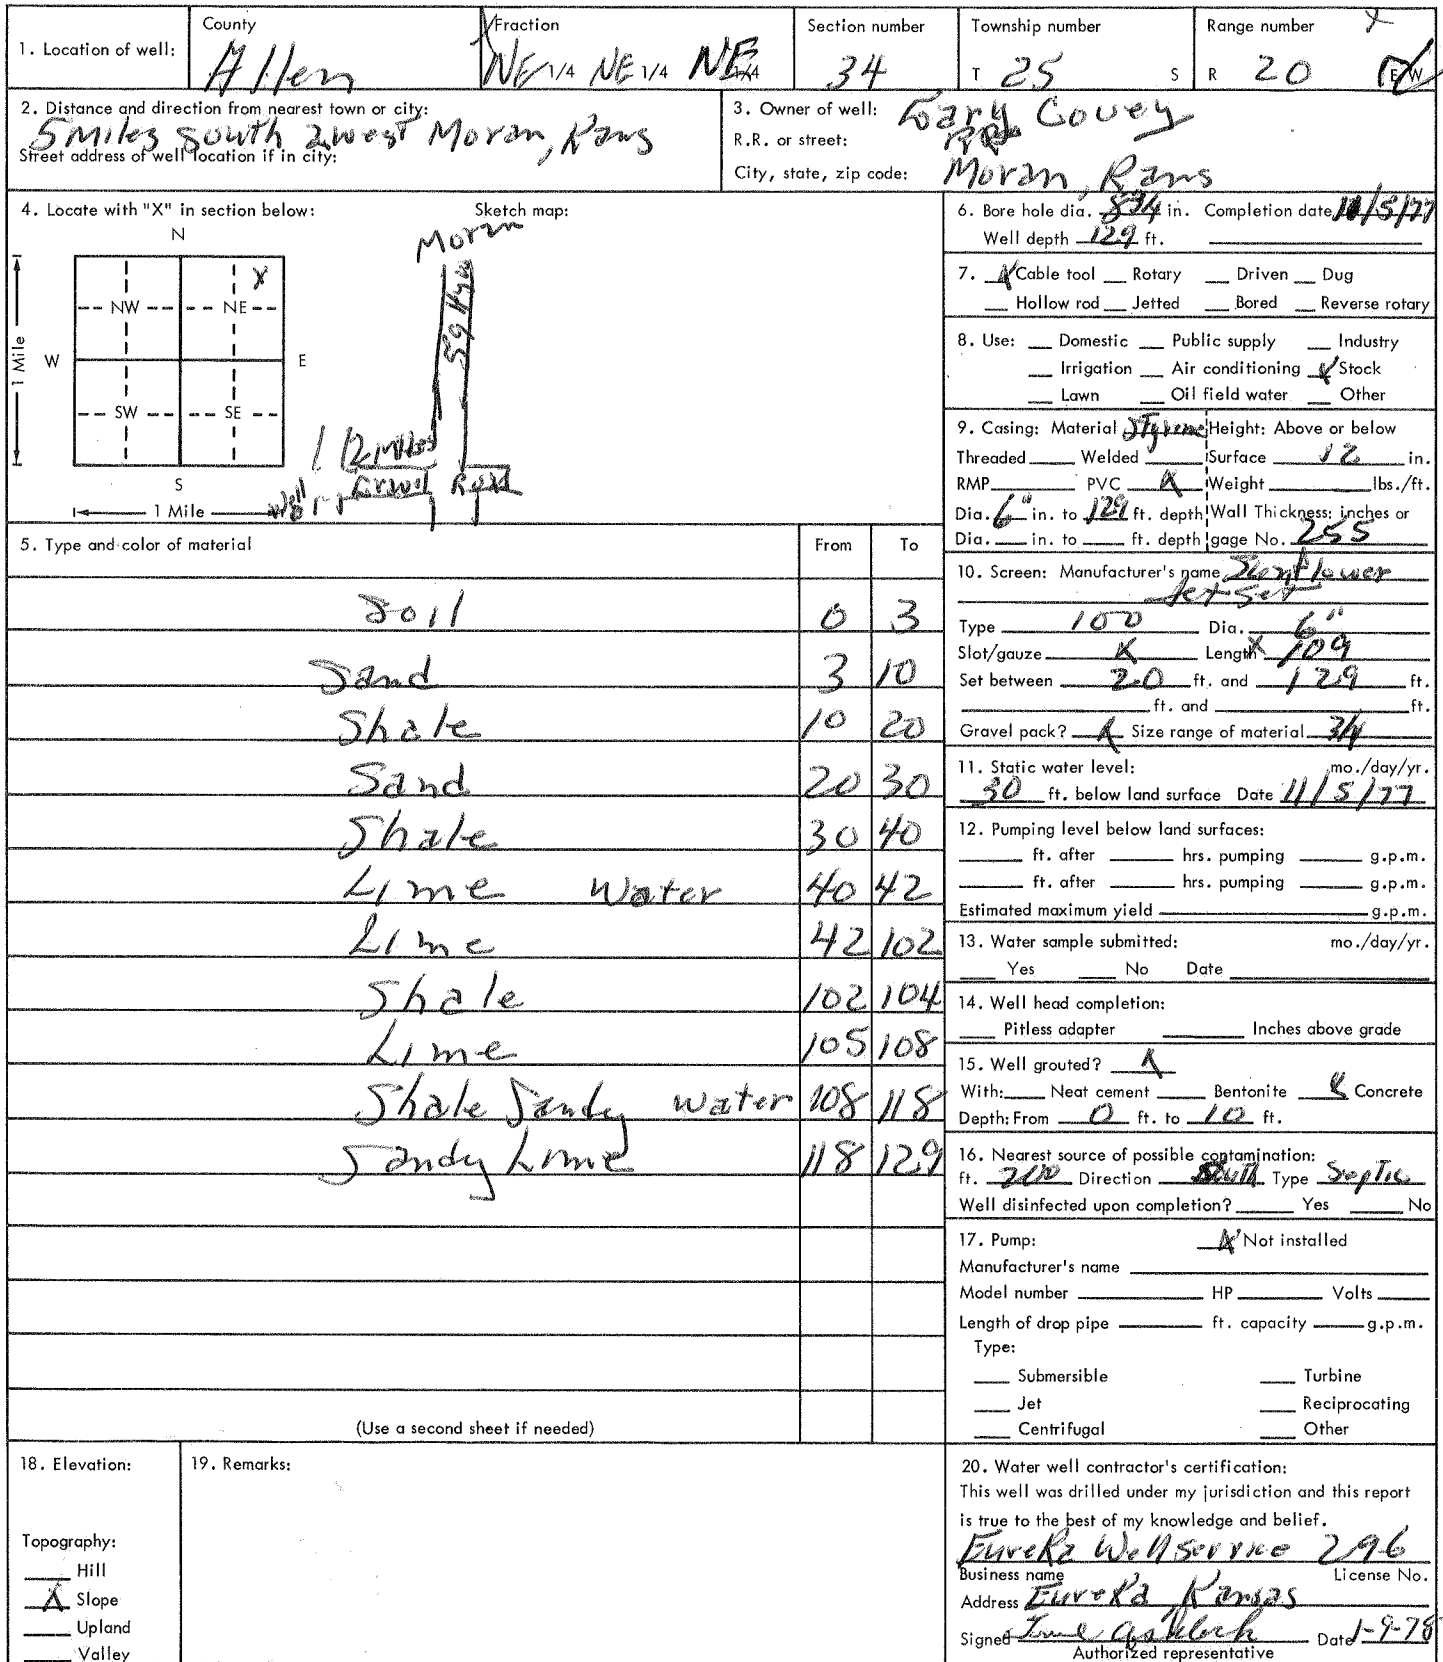 1. Location of well:
County
Allen
Fraction
NE 1/4 NE 1/4 NE 1/4
Section number
34
Township number
T 25 S
Range number
R 20 E/W
2. Distance and direction from nearest town or city:
5 miles south 2 west Moran, Kans
Street address of well location if in city:
3. Owner of well: Gary Covey
R.R. or street: RR
City, state, zip code: Moran, Kans
4. Locate with "X" in section below:
N
NW NE
X
W E
SW SE
S
1 Mile
1 Mile
Sketch map:
Moran
59 Hyw
1 1/2 Miles
Gravel Road
Well
5. Type and color of material From To
Soil 0 3
Sand 3 10
Shale 10 20
Sand 20 30
Shale 30 40
Lime Water 40 42
Lime 42 102
Shale 102 104
Lime 105 108
Shale Sandy water 108 118
Sandy Lime 118 129
(Use a second sheet if needed)
6. Bore hole dia. 8 3/4 in. Completion date 11/5/77
Well depth 129 ft.
7. X Cable tool Rotary Driven Dug
Hollow rod Jetted Bored Reverse rotary
8. Use: Domestic Public supply Industry
Irrigation Air conditioning X Stock
Lawn Oil field water Other
9. Casing: Material Styrene Height: Above or below
Threaded Welded Surface 12 in.
RMP PVC X Weight lbs./ft.
Dia. 6" in. to 129 ft. depth Wall Thickness: inches or
Dia. in. to ft. depth gage No. 255
10. Screen: Manufacturer's name Sunflower
Jet Set
Type 100 Dia. 6"
Slot/gauze X Length X 109
Set between 20 ft. and 129 ft.
ft. and ft.
Gravel pack? X Size range of material 3/4
11. Static water level: mo./day/yr.
30 ft. below land surface Date 11/5/77
12. Pumping level below land surfaces:
ft. after hrs. pumping g.p.m.
ft. after hrs. pumping g.p.m.
Estimated maximum yield g.p.m.
13. Water sample submitted: mo./day/yr.
Yes No Date
14. Well head completion:
Pitless adapter Inches above grade
15. Well grouted? X
With: Neat cement Bentonite X Concrete
Depth: From 0 ft. to 10 ft.
16. Nearest source of possible contamination:
ft. 200 Direction South Type Septic
Well disinfected upon completion? Yes No
17. Pump: X Not installed
Manufacturer's name
Model number HP Volts
Length of drop pipe ft. capacity g.p.m.
Type:
Submersible Turbine
Jet Reciprocating
Centrifugal Other
18. Elevation:
Topography:
Hill
X Slope
Upland
Valley
19. Remarks:
20. Water well contractor's certification:
This well was drilled under my jurisdiction and this report
is true to the best of my knowledge and belief.
Eureka Well service 296
Business name License No.
Address Eureka, Kansas
Signed Date 1-9-78
Authorized representative